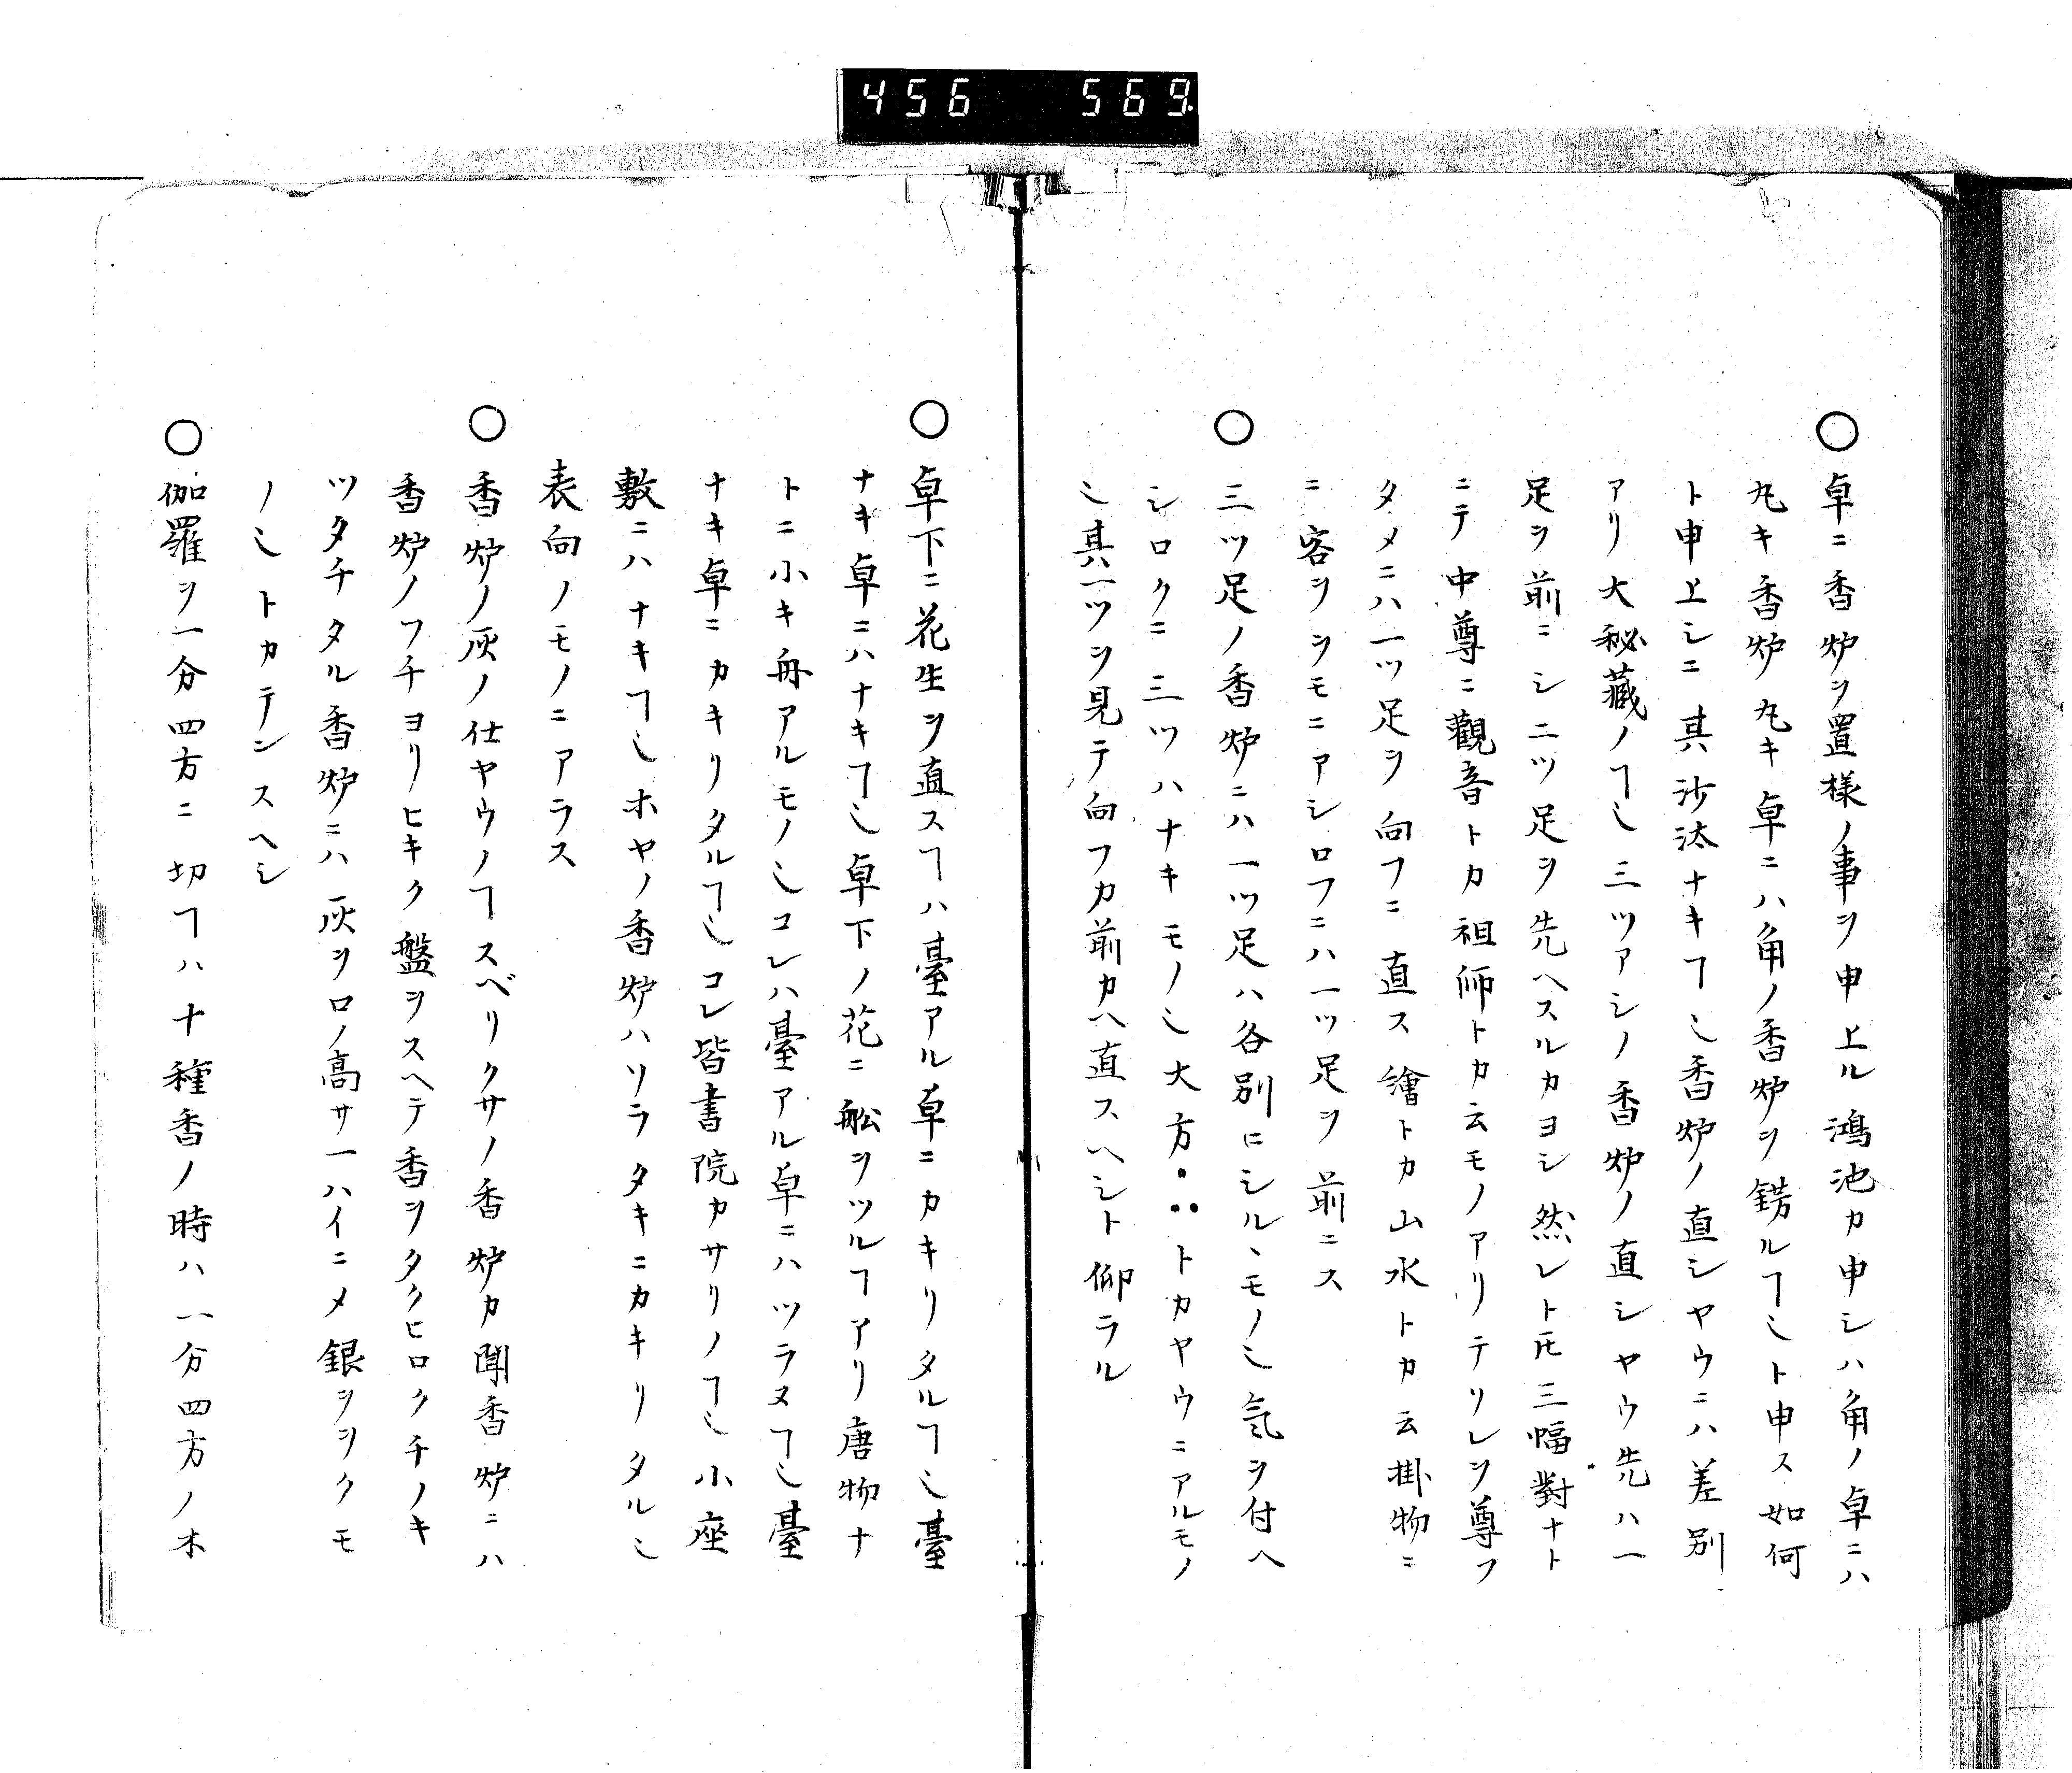 456 569
○卓ニ香炉ヲ置様ノ事ヲ申上ル鴻池カ申シハ角ノ卓ニハ
丸キ香炉丸キ卓ニハ角ノ香炉ヲ錺ルヿ乄ト申ス如何
ト申上シニ其沙汰ナキヿ乄香炉ノ直シヤウニハ差別
アリ大秘蔵ノヿ乄三ツアシノ香炉ノ直シヤウ先ハ一
足ヲ前ニシ二ツ足ヲ先ヘスルカヨシ然レトモ三幅對ナト
ニテ中尊ニ觀音トカ祖師トカ云モノアリテソレヲ尊フ
タメニハ一ツ足ヲ向フニ直ス繪トカ山水トカ云掛物ニ
ニ客ヲヲモニアシロフニハ一ツ足ヲ前ニス
○三ツ足ノ香炉ニハ一ツ足ハ各別ニシルヽモノ乄気ヲ付ヘ
シロクニ三ツハナキモノ乄大方∴トカヤウニアルモノ
乄其一ツヲ見テ向フカ前カヘ直スヘシト仰ラル
○卓下ニ花生ヲ直スヿハ臺アル卓ニカキリタルヿ乄臺
ナキ卓ニハナキヿ乄卓下ノ花ニ舩ヲツルヿアリ唐物ナ
トニ小キ舟アルモノ乄コレハ臺アル卓ニハツラヌヿ乄臺
ナキ卓ニカキリタルヿ乄コレ皆書院カサリノヿ乄小座
敷ニハナキヿ乄ホヤノ香炉ハソラタキニカキリタル乄
表向ノモノニアラス
○香炉ノ灰ノ仕ヤウノヿスベリクサノ香炉カ聞香炉ニハ
香炉ノフチヨリヒキク盤ヲスヘテ香ヲタクヒロクチノキ
ツタチタル香炉ニハ灰ヲロノ高サ一ハイニメ銀ヲヲクモ
ノ乄トカテンスヘシ
○伽羅ヲ一分四方ニ切ヿハ十種香ノ時ハ一分四方ノ木